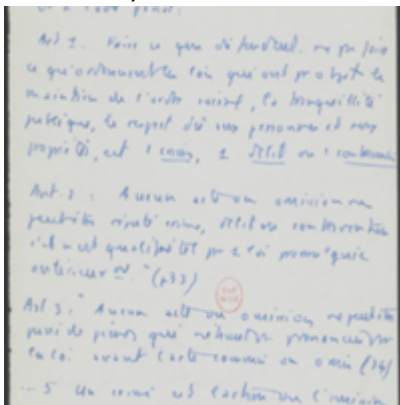 Art 1. Faire ce que défendent, ne pas faire
ce qu'ordonnent les lois qui ont pr objet le
maintien de l'ordre social, la tranquillité
publique, le respect dû aux personnes et aux
propriétés, est 1 crime, 1 délit ou 1 contravention
Art. 2 : Aucun acte ou omission ne
peut être réputé crime, délit ou contravention
s'il n'est qualifié tel pr 1 loi promulguée
(p33)
Art 3 : "Aucun acte ou omission ne peut être
puni de peines qui n'étaient prononcées par
la loi avant l'acte commis ou omis (34)
... 5 Un crime est l'action ou l'omission